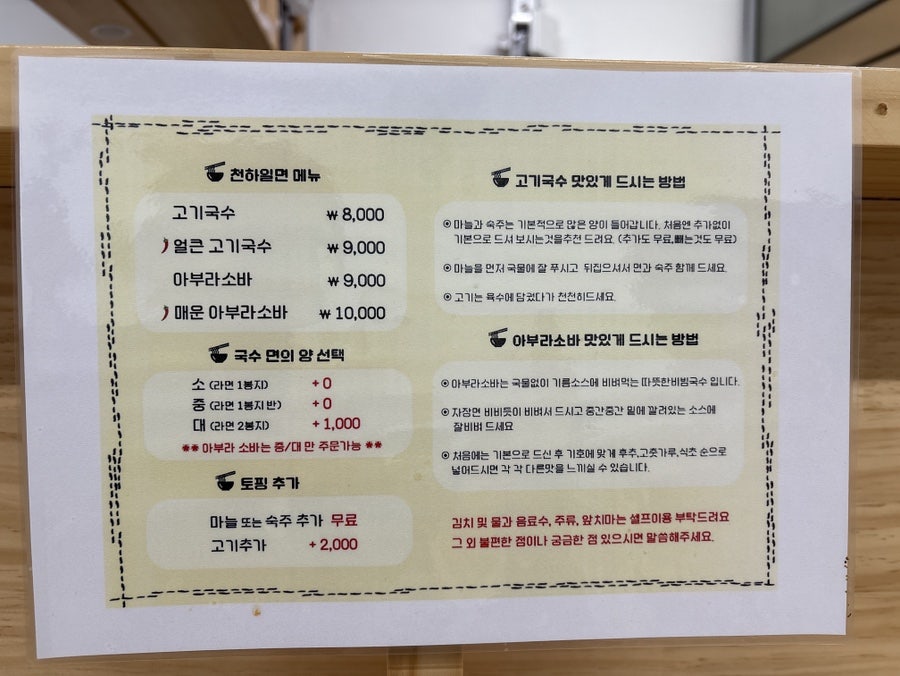 천하일면 메뉴
고기국수 ₩ 8,000
얼큰 고기국수 ₩ 9,000
아부라소바 ₩ 9,000
매운 아부라소바 ₩ 10,000
국수 면의 양 선택
소 (라면 1봉지) + 0
중 (라면 1봉지 반) + 0
대 (라면 2봉지) + 1,000
** 아부라 소바는 중/대 만 주문가능 **
토핑 추가
마늘 또는 숙주 추가 무료
고기추가 + 2,000
고기국수 맛있게 드시는 방법
마늘과 숙주는 기본적으로 많은 양이 들어갑니다. 처음엔 추가없이
기본으로 드셔 보시는것을추천 드려요. (추가도 무료,빼는것도 무료)
마늘을 먼저 국물에 잘 푸시고 뒤집으셔서 면과 숙주 함께 드세요.
고기는 육수에 담궜다가 천천히드세요.
아부라소바 맛있게 드시는 방법
아부라소바는 국물없이 기름소스에 비벼먹는 따뜻한비빔국수 입니다.
자장면 비비듯이 비벼서 드시고 중간중간 밑에 깔려있는 소스에
잘비벼 드세요
처음에는 기본으로 드신 후 기호에 맞게 후추,고춧가루,식초 순으로
넣어드시면 각 각 다른맛을 느끼실 수 있습니다.
김치 및 물과 음료수, 주류, 앞치마는 셀프이용 부탁드려요
그 외 불편한 점이나 궁금한 점 있으시면 말씀해주세요.